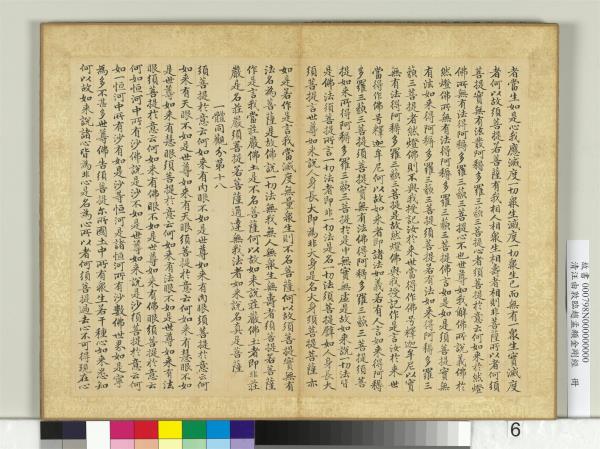 者當生如是心我應滅度一切眾生滅度一切眾生已而無有一眾生實滅度
者何以故須菩提若菩薩有我相人相眾生相壽者相則非菩薩所以者何須
菩提實無有法發阿耨多羅三藐三菩提心者須菩提於意云何如來於然燈
佛所有法得阿耨多羅三藐三菩提不不也世尊如我解佛所說義佛於
然燈佛所無有法得阿耨多羅三藐三菩提佛言如是如是須菩提實無
有法如來得阿耨多羅三藐三菩提須菩提若有法如來得阿耨多羅三
藐三菩提者然燈佛則不與我授記汝於來世當得作佛号釋迦牟尼以實
無有法得阿耨多羅三藐三菩提是故然燈佛與我授記作是言汝於來世
當得作佛号釋迦牟尼何以故如來者即諸法如義若有人言如來得阿耨
多羅三藐三菩提須菩提實無有法佛得阿耨多羅三藐三菩提須菩
提如來所得阿耨多羅三藐三菩提於是中無實無虛是故如來說一切法皆
是佛法須菩提所言一切法者即非一切法是故名一切法須菩提譬如人身長大
須菩提言世尊如來說人身長大即為非大身是名大身須菩提菩薩亦
如是若作是言我當滅度無量眾生則不名菩薩何以故須菩提實無有
法名為菩薩是故佛說一切法無我無人無眾生無壽者須菩提若菩薩
作是言我當莊嚴佛土是不名菩薩何以故如來說莊嚴佛土者即非莊
嚴是名莊嚴須菩提若菩薩通達無我法者如來說名真是菩薩
一體同觀分第十八
須菩提於意云何如來有肉眼不如是世尊如來有肉眼須菩提於意云何
如來有天眼不如是世尊如來有天眼須菩提於意云何如來有慧眼不如
是世尊如來有慧眼須菩提於意云何如來有法眼不如是世尊如來有法
眼須菩提於意云何如來有佛眼不如是世尊如來有佛眼須菩提於意云
何如恒河中所有沙佛說是沙不如是世尊如來說是沙須菩提於意云何
如一恒河中所有沙有如是沙等恒河是諸恒河所有沙數佛世界如是寧
為多不甚多世尊佛告須菩提尔所國土中所有眾生若干種心如來悉知
何以故如來說諸心皆為非心是名為心所以者何須菩提過去心不可得現在心
故書 000798N000000000
清汪由敦臨趙孟頫金剛經 冊
6